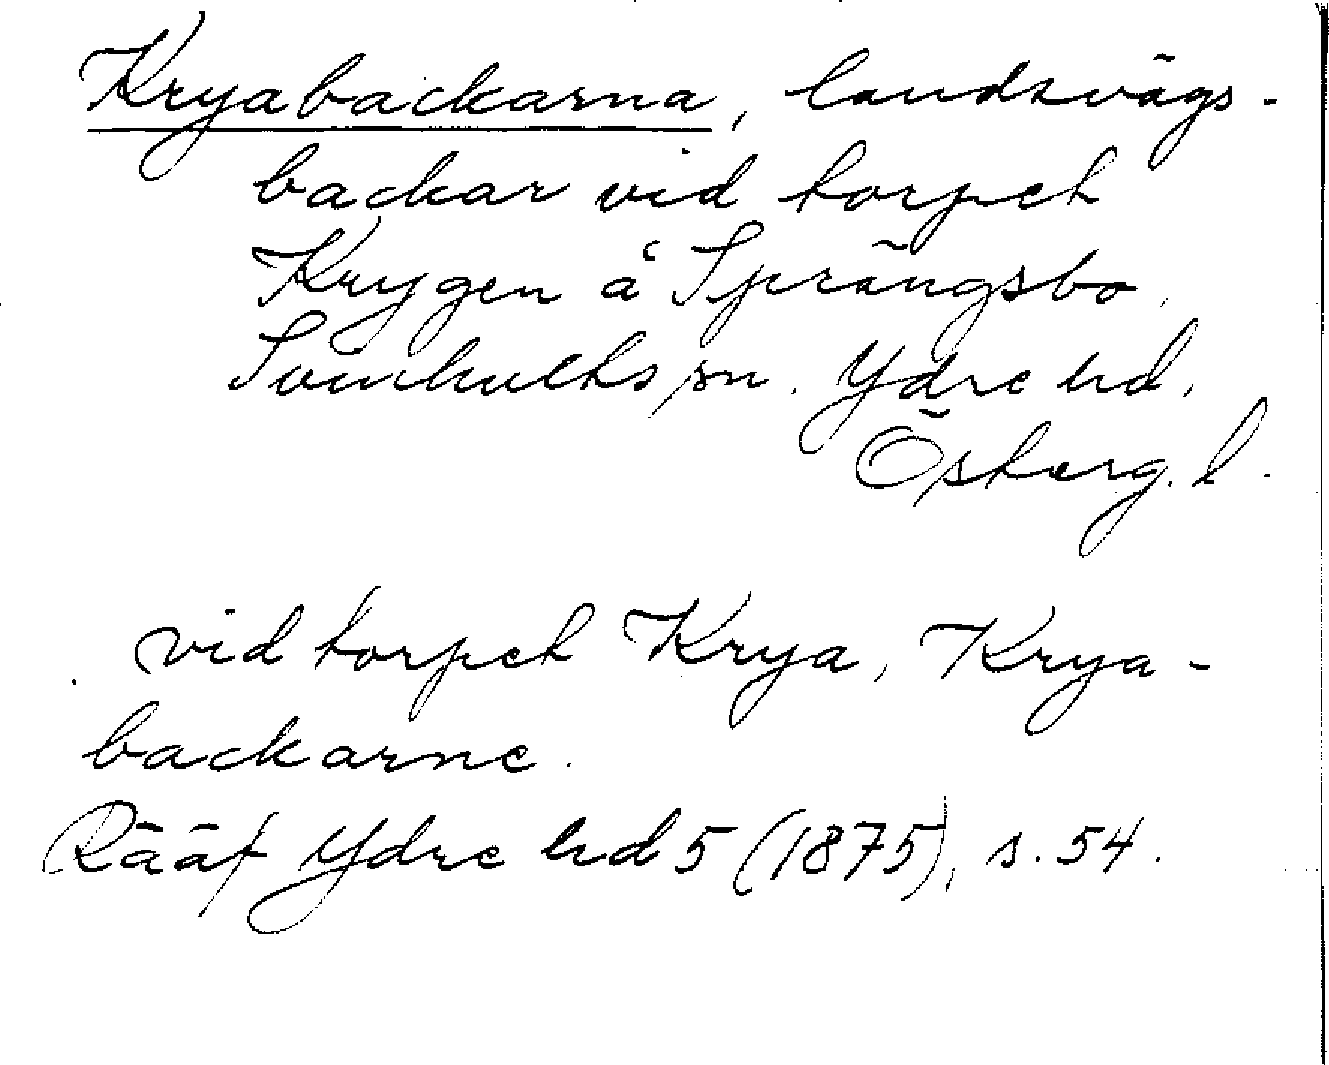 Kryabackarna, landsvägs-
backar vid torpet
Krygen å Sprängsbo,
Svinhults sn. Ydre hd.
Österg. l.
vid torpet Krya, Krya-
backarne.
Rääf Ydre hd 5 (1875), s. 54.